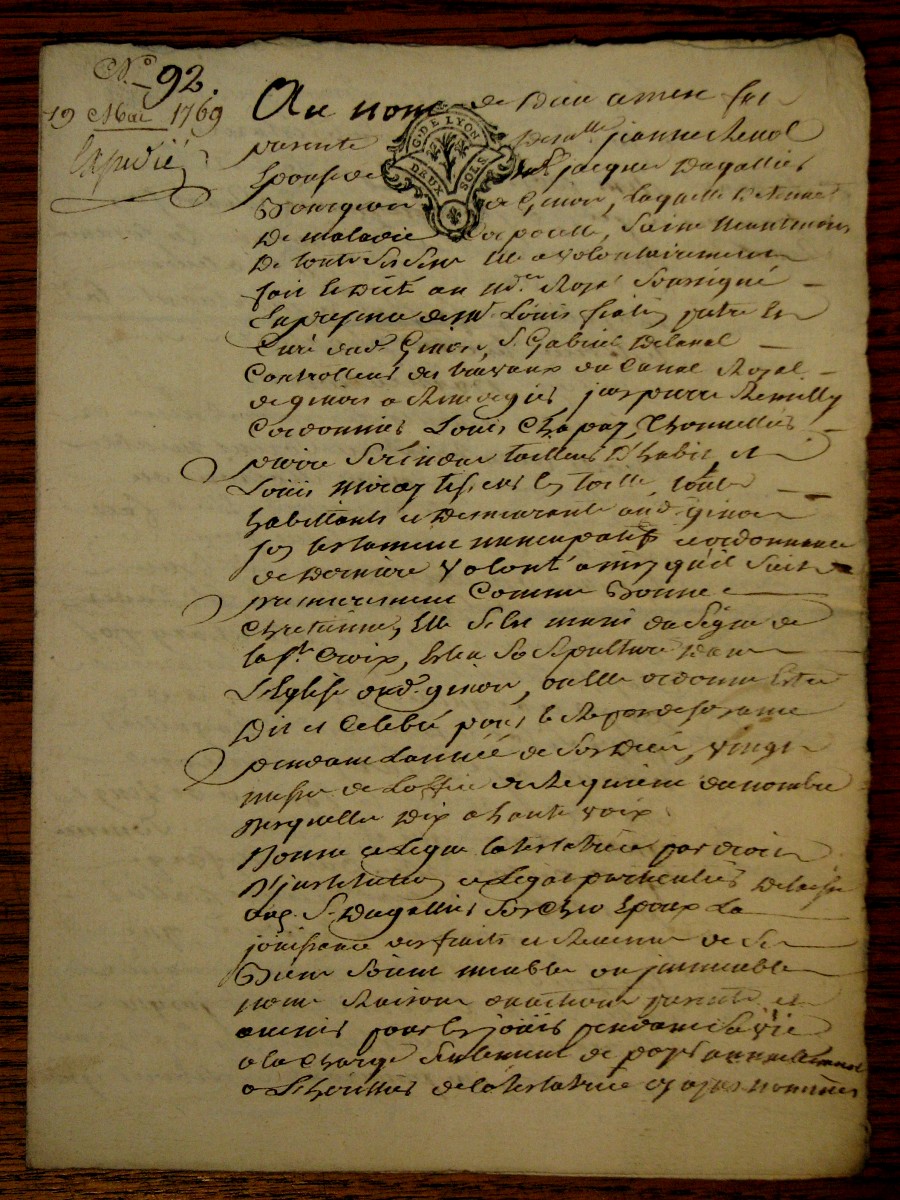 N.° 92.
19 Mai 1769
Expedié
G. DE LYON
DEUX SOLS
Au nom de Dieu amen fut
presente Demlle jeanne Renol
Epouse de Sr jacques Dugallies
Bourgeois de Givors, laquelle Detenue
De maladie Corporelle, Saine neantmoins
De touts Ses Sens Elle a volontairement
fait et Dicté au nore Royal Soussigné
En presence de mr Louis prêtre et
Curé dud. Givors, S. Gabriel Delaval
Controlleur des travaux du Canal Royal
de givors a jean pierre Remilly
Cordonnier Louis Chapay, Thonnellier
pierre tailleur D'habit, et
Louis en toille, touts
habittants et Demeurants aud. givors
Son testament nuncupatif et ordonnance
de Derniere Volonté ainsy qu'il Suit
premierement Comme Bonne
Chretienne, Elle S'est munie du Signe de
la Ste Croix, Eslu Sa Sepulture Dans
L'Eglise dud. givors, ou Elle ordonne Estre
Dit et Celebré pour le Repos de Son ame
pendant L'année de Son Deces, vingt
messes de L'office de Requiem du nombre
Desquelles Dix a haute voix.
Donne et Legue la testatrice par droit
D'institution et Legat particulier Delaissé
aud. S. Dugallies Son cher Epoux La
jouissance des fruits et Revenus de Ses
Biens Soient meubles ou immeubles
noms Raisons ou actions presents et
avenirs pour En jouir pendant Sa vie
a la Charge Seulement de payer annuellement
a L'heritier de la testatrice cy apres nommée